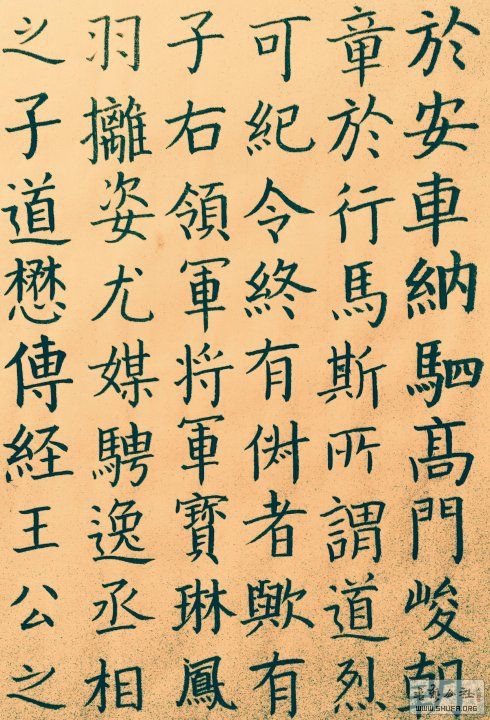 於安車納駟髙門峻朝
章於行馬斯所謂道烈
可紀令終有俶者歟有
子右領軍将軍寶琳鳳
羽攡姿尤媒騁逸丞相
之子道懋傳経王公之
WWW.SHUFA.ORG